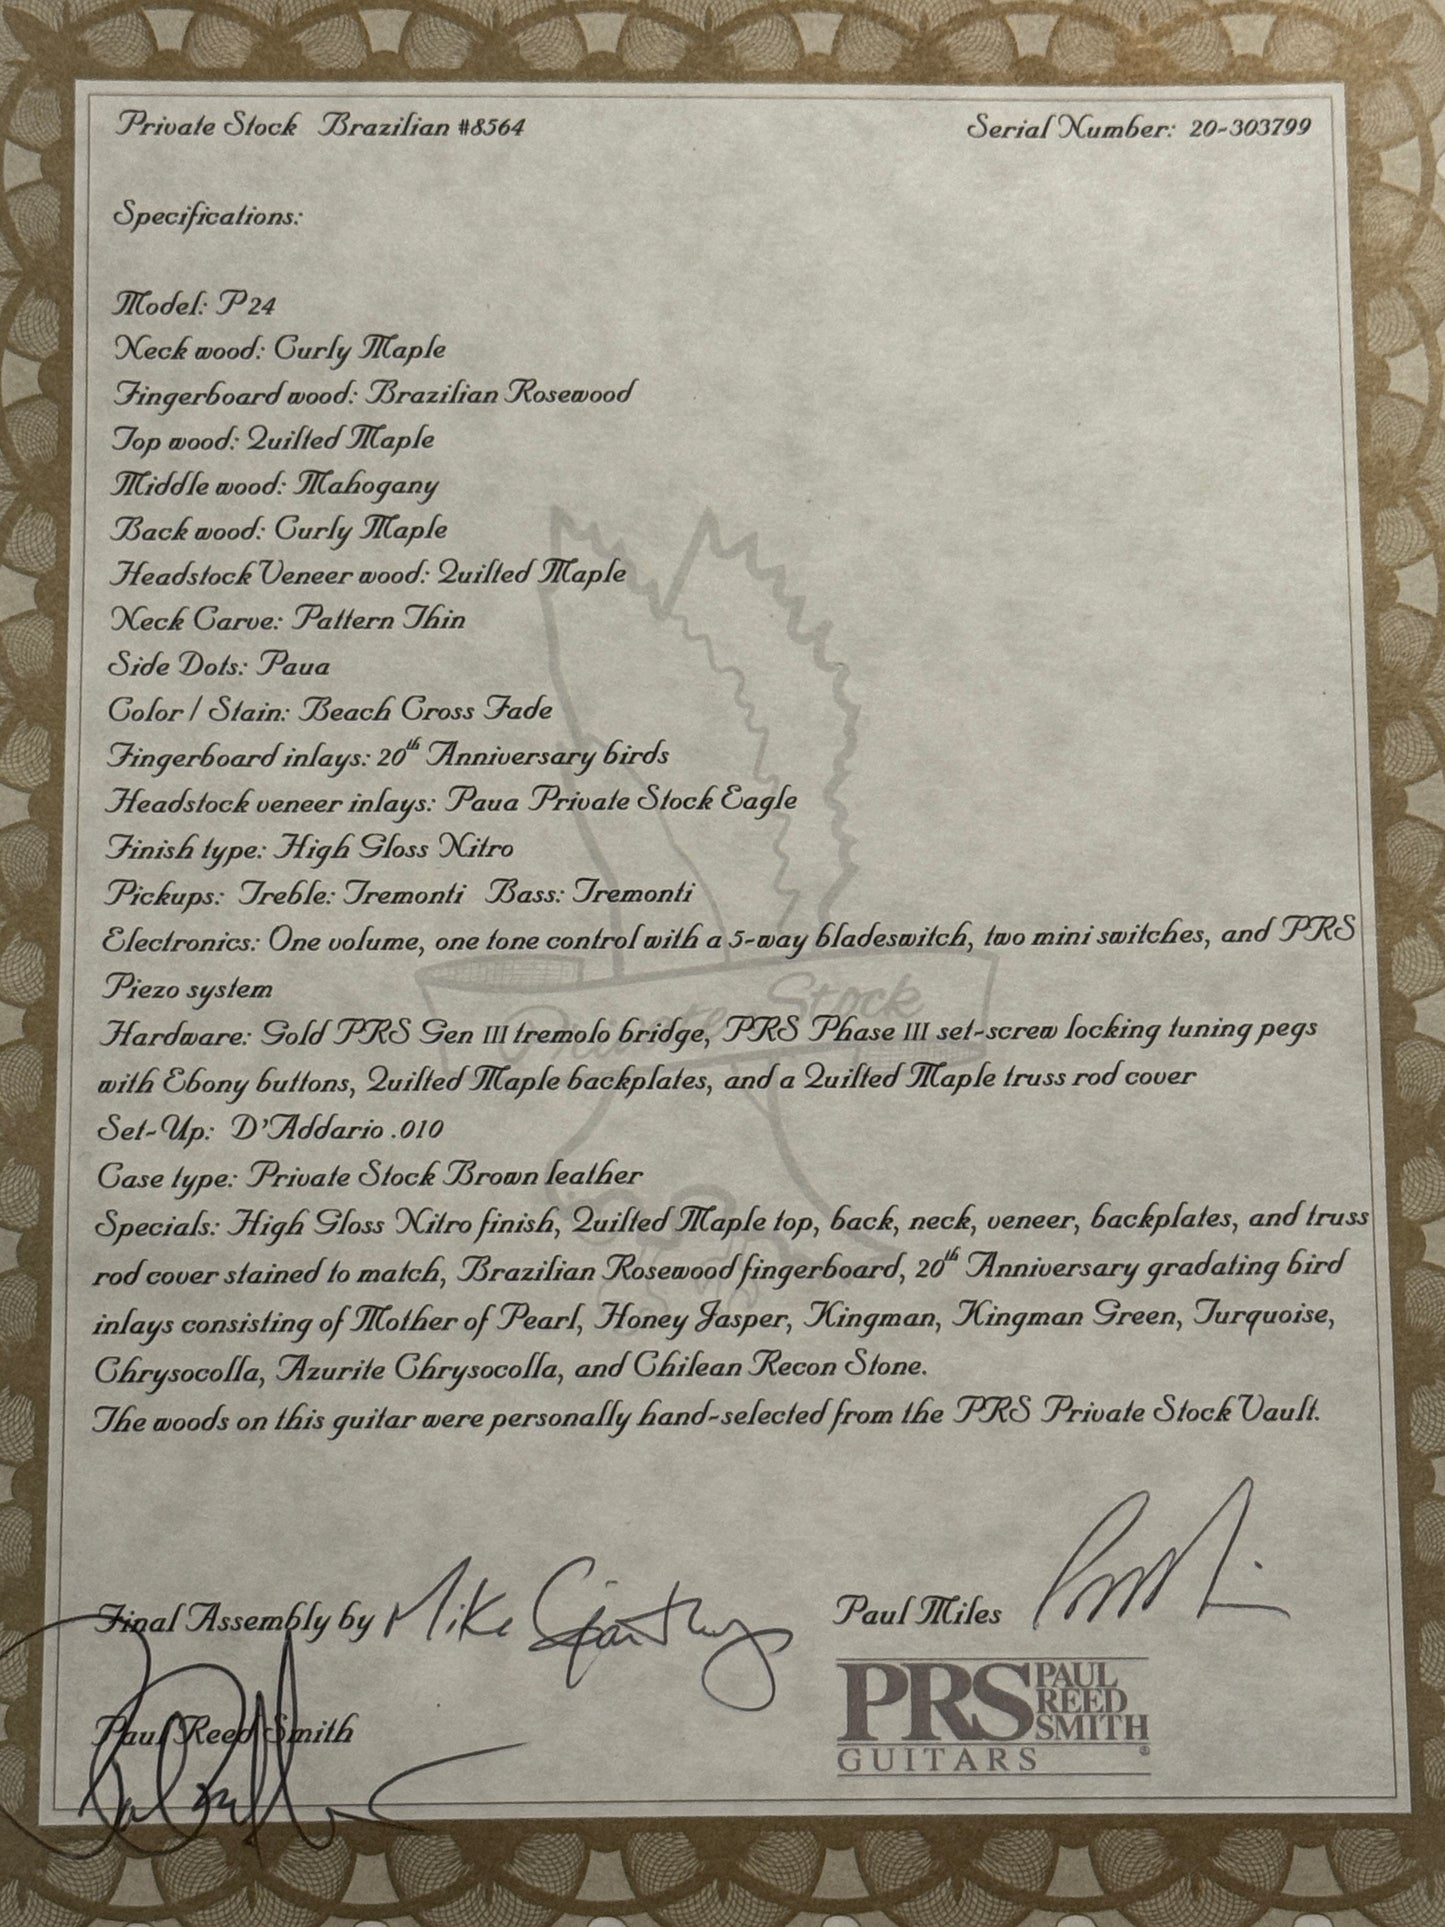 Private Stock Brazilian #8564 Serial Number: 20-303799
Specifications:
Model: P24
Neck wood: Curly Maple
Fingerboard wood: Brazilian Rosewood
Top wood: Quilted Maple
Middle wood: Mahogany
Back wood: Curly Maple
Headstock Veneer wood: Quilted Maple
Neck Carve: Pattern Thin
Side Dots: Paua
Color / Stain: Beach Cross Fade
Fingerboard inlays: 20th Anniversary birds
Headstock veneer inlays: Paua Private Stock Eagle
Finish type: High Gloss Nitro
Pickups: Treble: Tremonti Bass: Tremonti
Electronics: One volume, one tone control with a 5-way bladeswitch, two mini switches, and PRS
Piezo system
Private Stock
Hardware: Gold PRS Gen III tremolo bridge, PRS Phase III set-screw locking tuning pegs
with Ebony buttons, Quilted Maple backplates, and a Quilted Maple truss rod cover
Set-Up: D'Addario .010
Case type: Private Stock Brown leather
Specials: High Gloss Nitro finish, Quilted Maple top, back, neck, veneer, backplates, and truss
rod cover stained to match, Brazilian Rosewood fingerboard, 20th Anniversary gradating bird
inlays consisting of Mother of Pearl, Honey Jasper, Kingman, Kingman Green, Turquoise,
Chrysocolla, Azurite Chrysocolla, and Chilean Recon Stone.
The woods on this guitar were personally hand-selected from the PRS Private Stock Vault.
Final Assembly by Mike Paul Miles
Paul Reed Smith
PRS PAUL REED SMITH
GUITARS ®